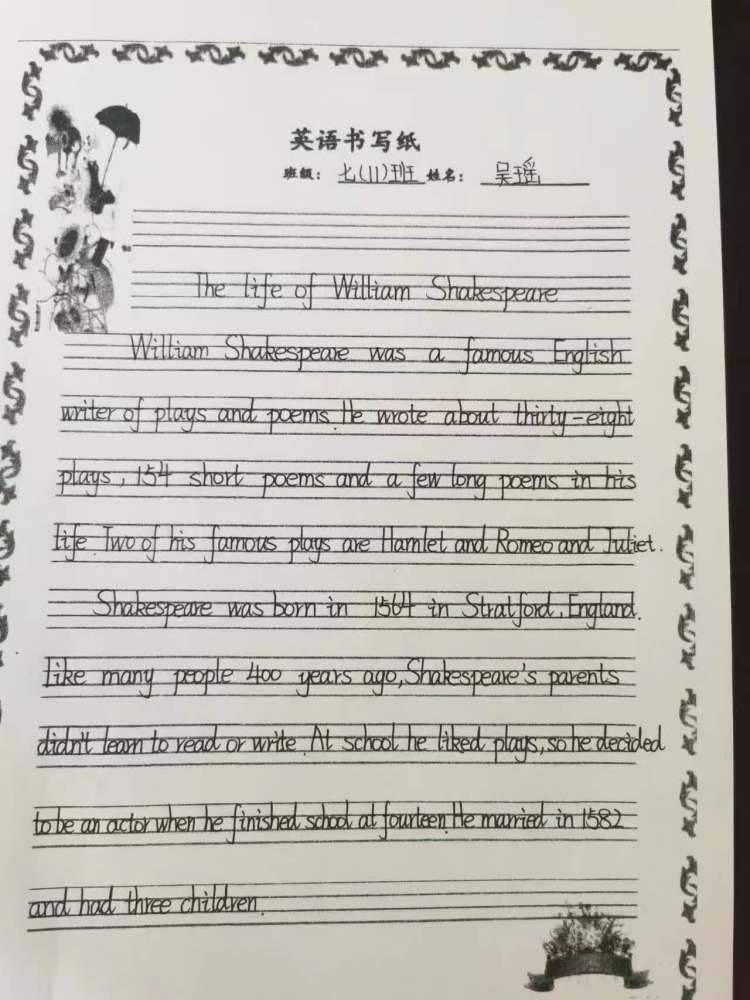 英语书写纸
班级：七(11)班 姓名：吴瑶
The life of William Shakespeare
William Shakespeare was a famous English
writer of plays and poems. He wrote about thirty-eight
plays, 154 short poems and a few long poems in his
life. Two of his famous plays are Hamlet and Romeo and Juliet.
Shakespeare was born in 1564 in Stratford, England.
like many people 400 years ago, Shakespeare's parents
didn't learn to read or write. At school he liked plays, so he decided
to be an actor when he finished school at fourteen. He married in 1582
and had three children.